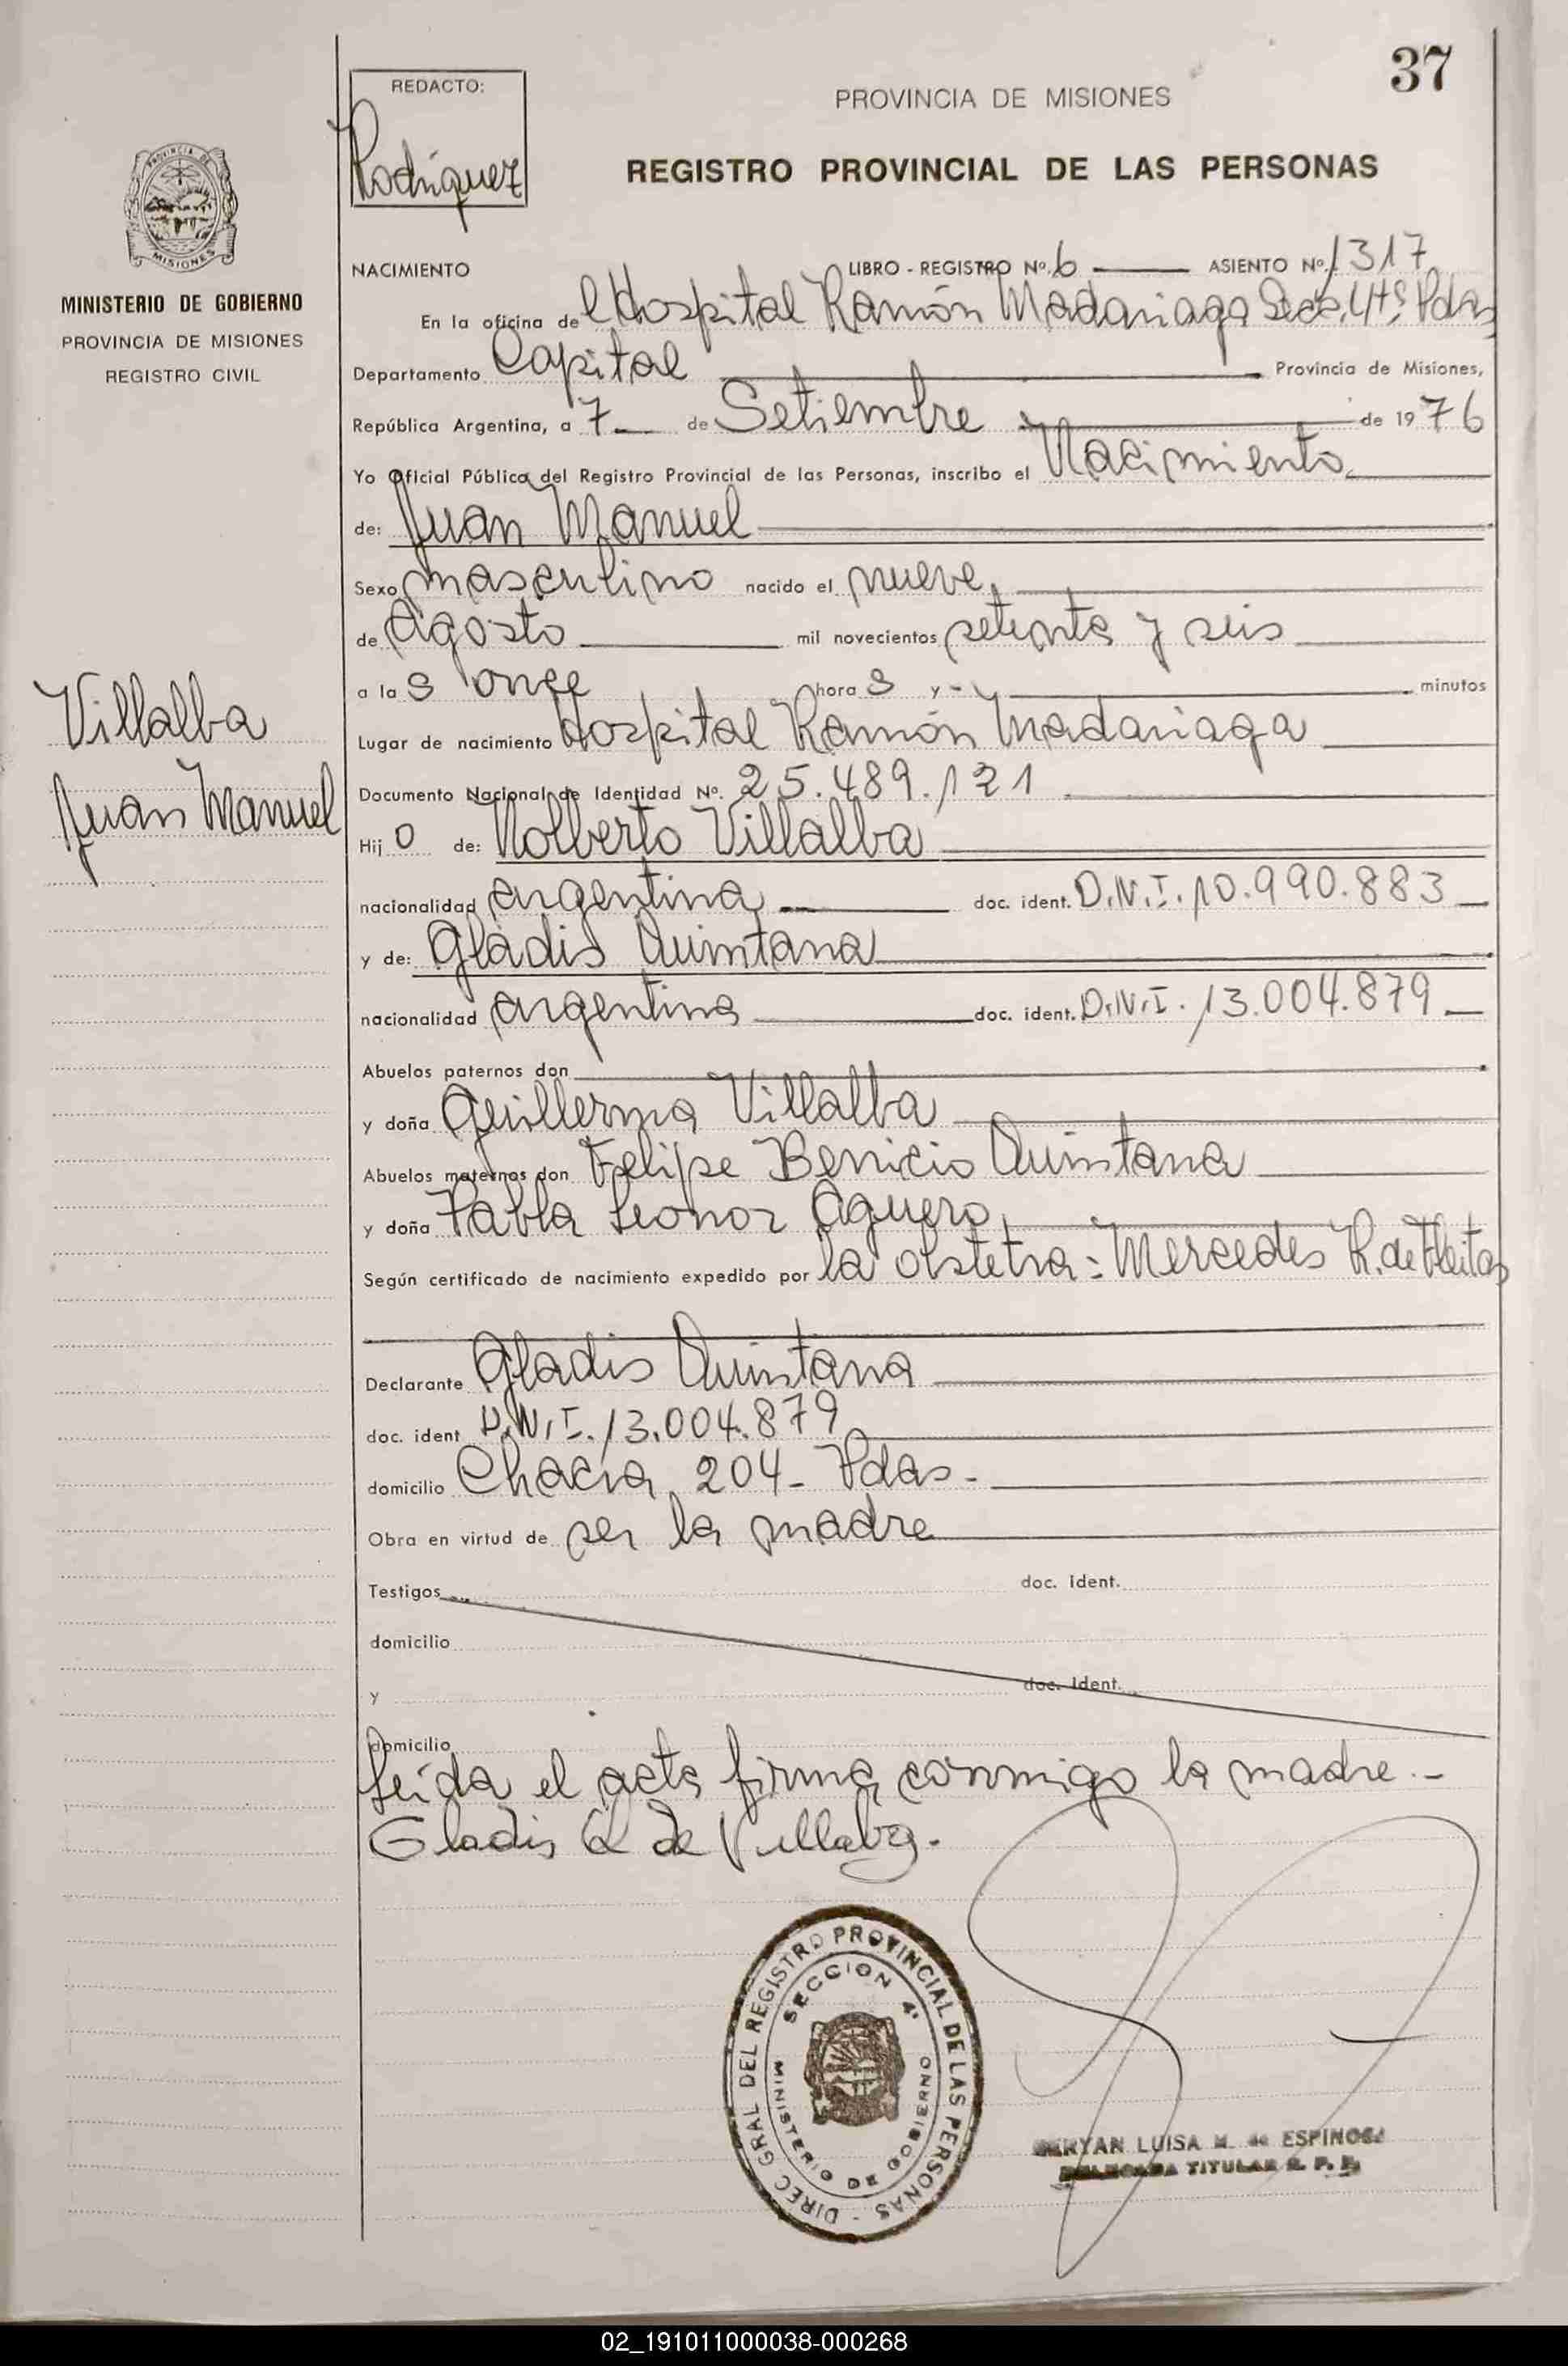 37
REDACTO:
Rodríguez
PROVINCIA DE MISIONES
REGISTRO PROVINCIAL DE LAS PERSONAS
PROVINCIA DE
MISIONES
MINISTERIO DE GOBIERNO
PROVINCIA DE MISIONES
REGISTRO CIVIL
Villalba
Juan Manuel
NACIMIENTO LIBRO - REGISTRO Nº. 6 ASIENTO Nº. 1317
En la oficina del Hospital Ramón Madariaga Secc. 4tª Pdas
Departamento Capital Provincia de Misiones,
República Argentina, a 7 de Setiembre de 1976
Yo Oficial Público del Registro Provincial de las Personas, inscribo el Nacimiento
de: Juan Manuel
Sexo masculino nacido el nueve
de Agosto mil novecientos setenta y seis
a las once horas y - minutos
Lugar de nacimiento Hospital Ramón Madariaga
Documento Nacional de Identidad Nº. 25.489.121
Hijo de: Nolberto Villalba
nacionalidad argentina doc. ident. D.N.I. 10.990.883
y de: Gladis Quintana
nacionalidad argentina doc. ident. D.N.I. 13.004.879
Abuelos paternos don
y doña Guillerma Villalba
Abuelos maternos don Felipe Benicio Quintana
y doña Pabla Leonor Aguero
Según certificado de nacimiento expedido por la obstetra: Mercedes R. de Fleitas
Declarante Gladis Quintana
doc. ident D.N.I. 13.004.879
domicilio Chacra 204- Pdas-
Obra en virtud de ser la madre
Testigos doc. ident.
domicilio
y doc. ident.
domicilio
Leída el acta firma conmigo la madre.-
Gladis Q de Villalba.
DIREC GRAL DEL REGISTRO PROVINCIAL DE LAS PERSONAS -
SECCION 4ª
MINISTERIO DE GOBIERNO
LUISA M. de ESPINOSA
TITULAR R. P. P.
02_191011000038-000268